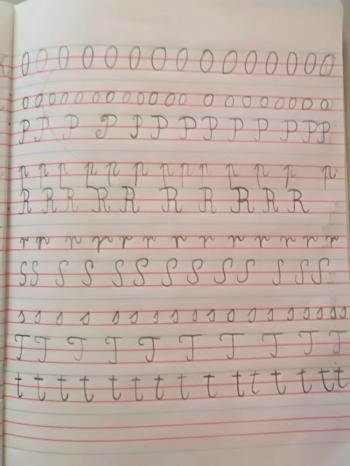 O O O O O O O O O O O O O O O
o o o o o o o o o o o o o o o o o o o o
P P P P P P P P P P P P P
p p p p p p p p p p p p p
R R R R R R R R R R
r r r r r r r r r r r r r
S S S S S S S S S S S S S
s s s s s s s s s s s s s s s s s s
T T T T T T T T T T
t t t t t t t t t t t t t t t